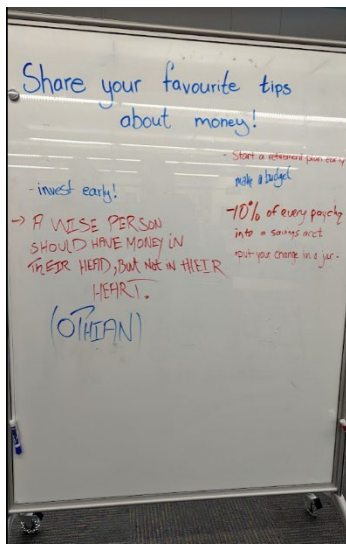 Share your favourite tips
about money!
- invest early!
→ A WISE PERSON
SHOULD HAVE MONEY IN
THEIR HEAD, BUT NOT IN THEIR
HEART.
(OTHIAN)
- Start a retirement plan early
make a budget
-10% of every paychq
into a savings acct
put your change in a jar.